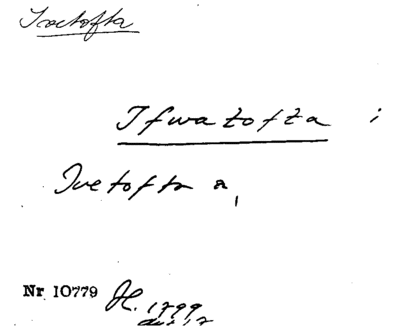 Ivetofta
Ifwatofta i
Ivetofta a,
Nr 10779 H. 1799